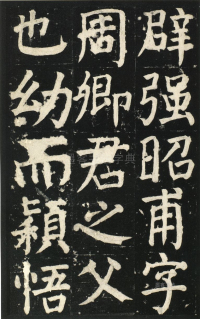 辟强昭甫字
周卿君之父
也幼而颖悟